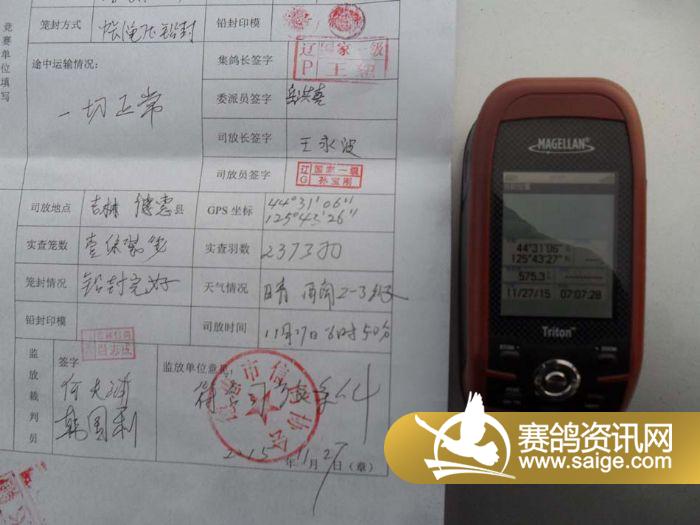 竞赛单位填写
笼封方式 铅封
铅封印模
途中运输情况:
一切正常
集鸽长签字
辽 国家一级
P 王
委派员签字
司放长签字 王永波
司放员签字
辽 国家一级
G 孙宝刚
司放地点 吉林 德惠县
GPS 坐标 44°31'06"
125°43'26"
实查笼数
实查羽数 2373羽
笼封情况 铅封完好
天气情况 晴 西南2-3级
铅封印模
司放时间 11月27日6时50分
监放裁判员
签字
韩国利
监放单位意见:
符合司放条件
市信鸽协会
2015年11月27日(章)
MAGELLAN
44°31'06"
125°43'27"
575.3
11/27/15 07:07:28
Triton
赛鸽资讯网
www.saige.com